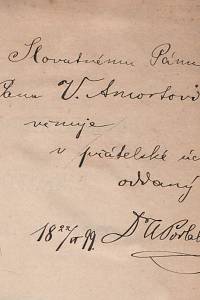 Slovutnému Pánu
Panu V. Amortovi
věnuje
v přátelské úc
oddaný
18 22/VI 99. Dr